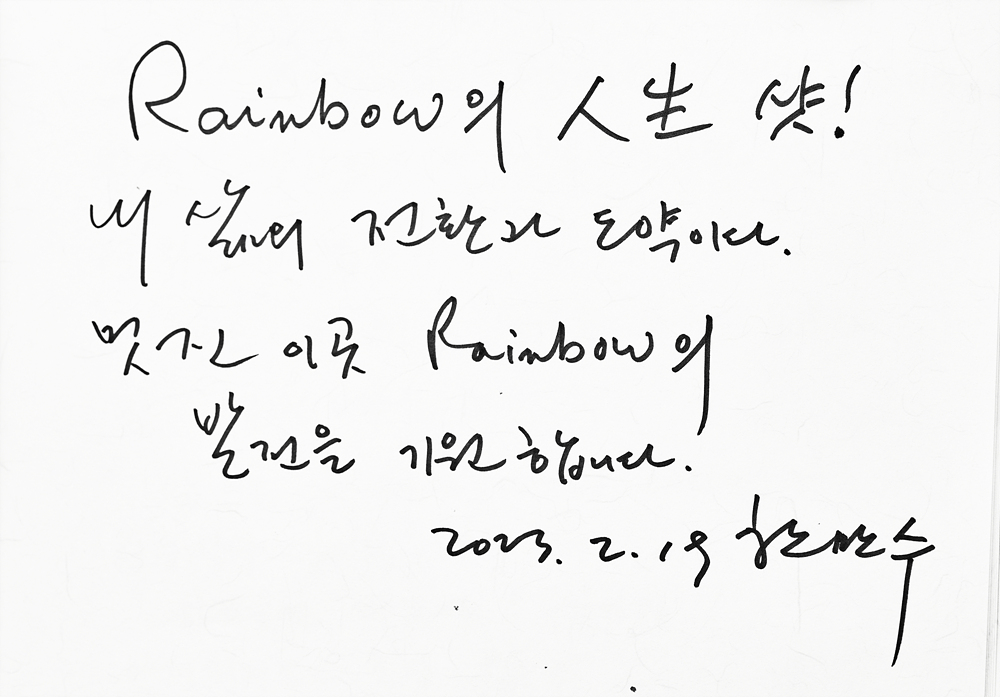 Rainbow의 人生 샷!
내 삶의 전환과 도약이다.
멋진 이곳 Rainbow의
발전을 기원합니다.
2023. 2. 19